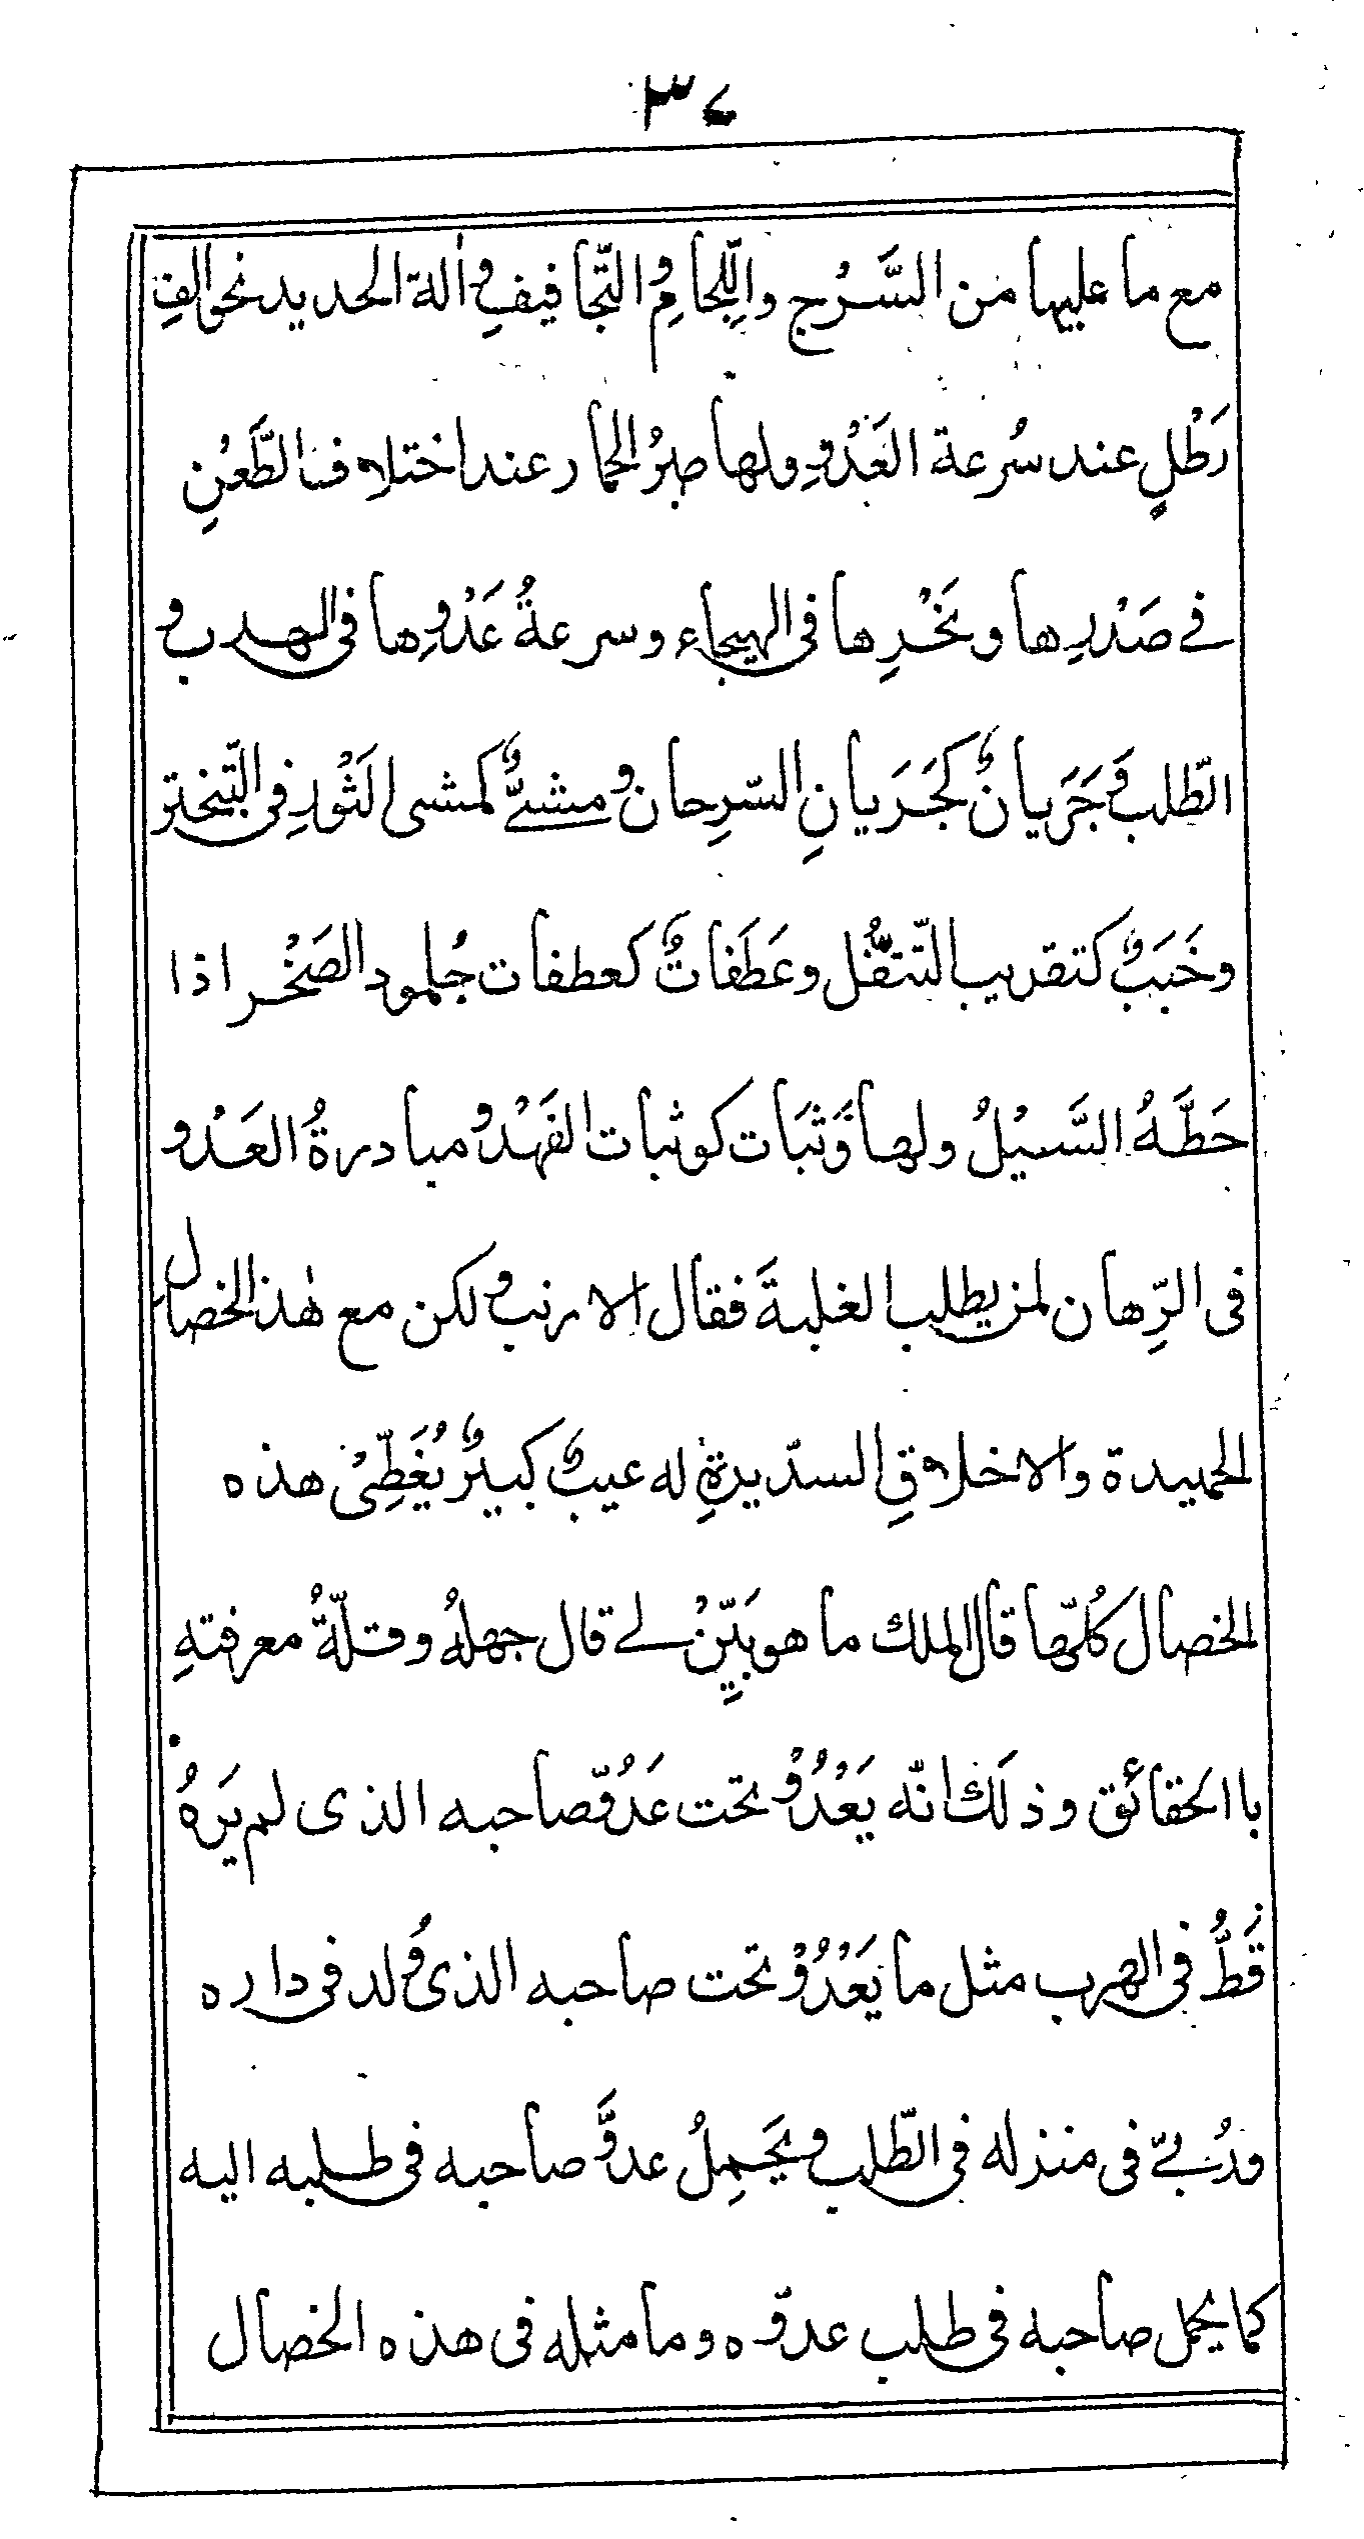 ٣٤
مع ما عليها من السَّرْج واللِّجامِ و التّجافيفِ و اٰلة الحديد نحو الفِ
رَطْلٍ عند سُرعة العَدْوِ ولها صبرُ الحمار عند اختلاف الطَّعْنِ
في صَدْرِها ونَحْرِها فى الهيجاء وسرعةُ عَدْوِها فى الهرب و
الطّلب وَجَرَيانٌ كجَرَيانِ السّرِحان و مشىٌ كمشى الثَوْرِ فى التّبختر
وخَبَبٌ كتقريب التّتقُّل وعَطَفاتٌ كعطفات جُلمود الصَخْر اذا
حَطَّهُ السَّيْلُ ولها وَثَبَات كوثبات الفَهْد و مبادرةُ العَدْو
فى الرِّهان لمن يطلب الغلبةَ فقال الارنب و لكن مع هٰذ الخصال
الحميدة والاخلاقِ السدّيدةِ له عيبٌ كبيرٌ يُغَطِّىْ هذه
الخصال كُلّها قال الملك ما هو بَيِّنْ لے قال جهلهُ وقلّةُ معرفتهِ
با الحقائق وذلَك انّه يَعْدُوْ تحت عَدُوِّ صاحبه الذى لم يَرَهُ
قَطُّ فى الهرب مثل ما يَعْدُوْ تحت صاحبه الذى وُلد فى داره
ورُبىّ فى منزله فى الطّلب و يَحمِلُ عدوَّ صاحبه فى طلبه اليه
كما يحمل صاحبه فى طلب عدوّه وما مثله فى هذه الخصال